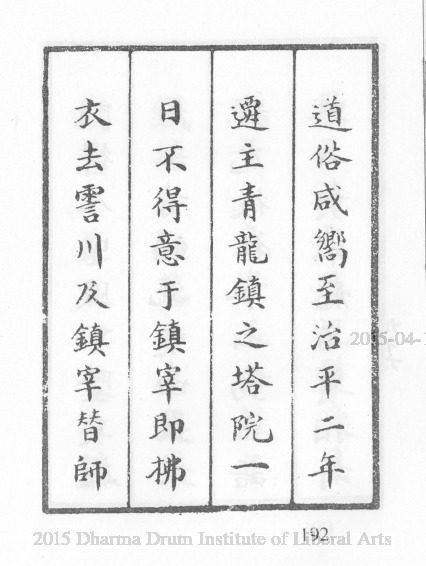 道俗咸嚮至治平二年
遷主青龍鎮之塔院一
日不得意于鎮宰即拂
衣去霅川及鎮宰替師
192
2015 Dharma Drum Institute of Liberal Arts